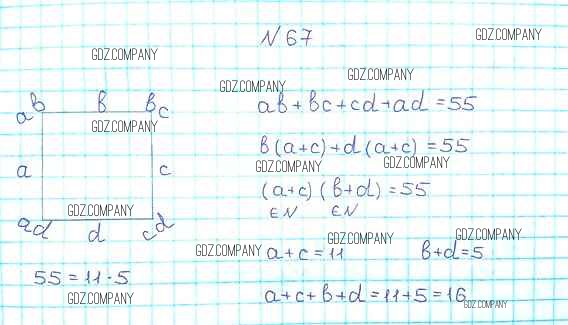 N 67
GDZ.COMPANY
GDZ.COMPANY
GDZ.COMPANY
GDZ.COMPANY
ab в вc
ab + вc + cd + ad = 55
GDZ.COMPANY
в(a+c) + d(a+c) = 55
a c
GDZ.COMPANY
GDZ.COMPANY
(a+c)(в+d) = 55
∈N ∈N
GDZ.COMPANY
ad d cd
GDZ.COMPANY
GDZ.COMPANY
GDZ.COMPANY
a+c=11 в+d=5
55 = 11 · 5
GDZ.COMPANY
a+c+в+d=11+5=16
GDZ.COMPANY